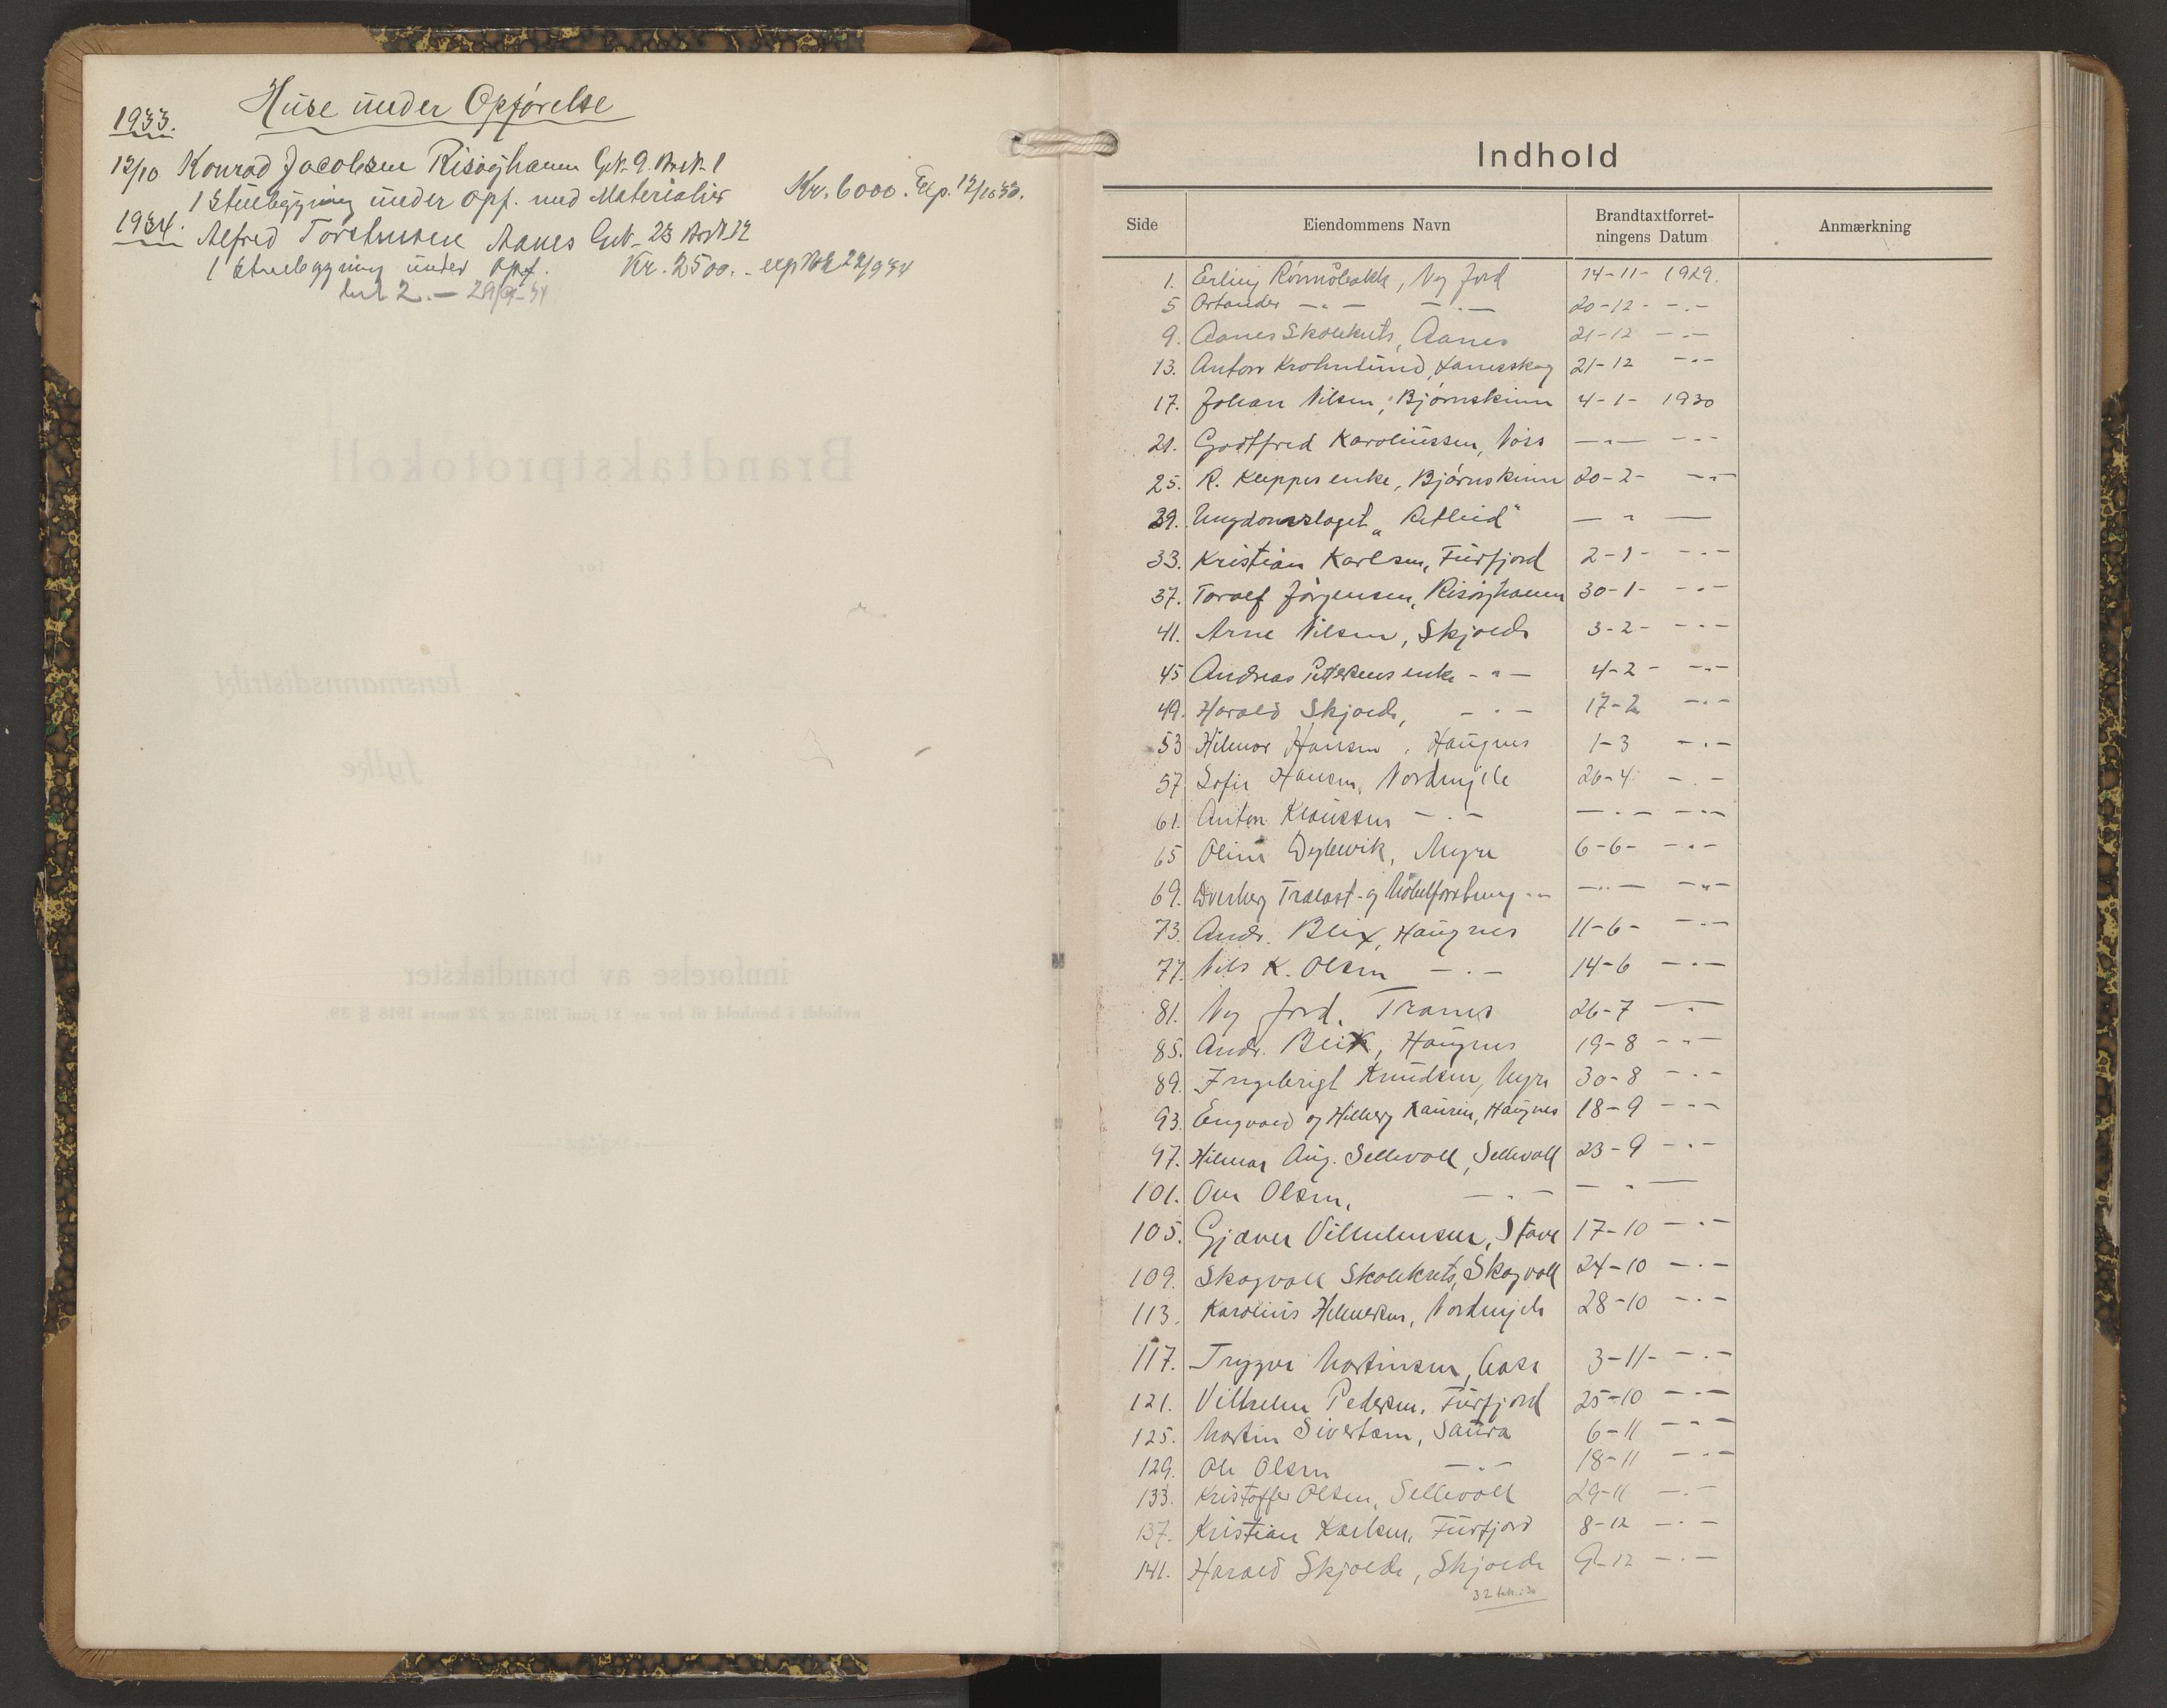 Huse under Opførelse
1933.
12/10 Konrad Jacobsen Risøyhamn Gnr. 9. Brnr. 1
1 Stuebygning under opf. med Materialier Kr. 6000. Exp. 12/10 33.
1934. Alfred Torstensen Aanes Gnr. 23 Brnr 12
1 Stuebygning under opf. Kr. 2500.- exp 22/9 34
2.- 29/9-34
Indhold
Side Eiendommens Navn Brandtaxtforret-
ningens Datum Anmærkning
1. Erling Rønnebakk, Ny Jord 14-11- 1929.
5 — " — — " — 20-12- — " —
9. Aanes Skolekrets, Aanes 21-12 — " —
13. Anton Krohnlund, 21-12 — " —
17. Johan Nilsen, Bjørnskinn 4-1- 1930
21. Godtfred Karoliussen, Nøss — " — — " —
25. R. Kleppes enke, Bjørnskinn 20-2- — " —
29. Ungdomslaget „Retleid" — " —
33. Kristian Karlsen, Fiirfjord 2-1- — " —
37. Toralf Jørgensen, Risøyhamn 30-1- — " —
41. Arne Nilsen, Skjolde 3-2- — " —
45 Andreas Pettersens enke — " — 4-2 - — " —
49. Harald Skjolde, — " — 17-2 — " —
53 Hilmar Hansen, Haugnes 1-3 — " —
57 Sofie Hansen, Nordmjele 26-4 — " —
61. Anton Klaussen — " — — " — — " —
65 Oline Dybwik, Myre 6-6- — " —
69. Dverberg Trælast- og Møbelforretning — " — — " — — " —
73. Andr. Blix, Haugnes 11-6- — " —
77. Nils K. Olsen — " — 14-6 — " —
81. Ny Jord, Tranes 26-7 — " —
85. Andr. Blix, Haugnes 19-8 — " —
89. Ingebrigt Knudsen, Myre 30-8 — " —
93. Engvald og Hilberg Hansen, Haugnes 18-9 — " —
97. Hilmar Aug. Sellevoll, Sellevoll 23-9 — " —
101. Ove Olsen, — " — — " —
105. Gjæver Vilhelmsen, Stave 17-10 — " —
109. Skogvoll Skolekrets, Skogvoll 24-10 — " —
113. Karolius Helmersen, Nordmjele 28-10 — " —
117. Trygve Martinsen, Aase 3-11- — " —
121. Vilhelm Pedersen, Fiirfjord 25-10 — " —
125. Martin Sivertsen, Saura 6-11 — " —
129. Ole Olsen — " — 18-11 — " —
133. Kristoffer Olsen, Sellevoll 29-11 — " —
137. Kristian Karlsen, Fiirfjord 8-12 — " —
141. Harald Skjolde, Skjolde 9-12 — " —